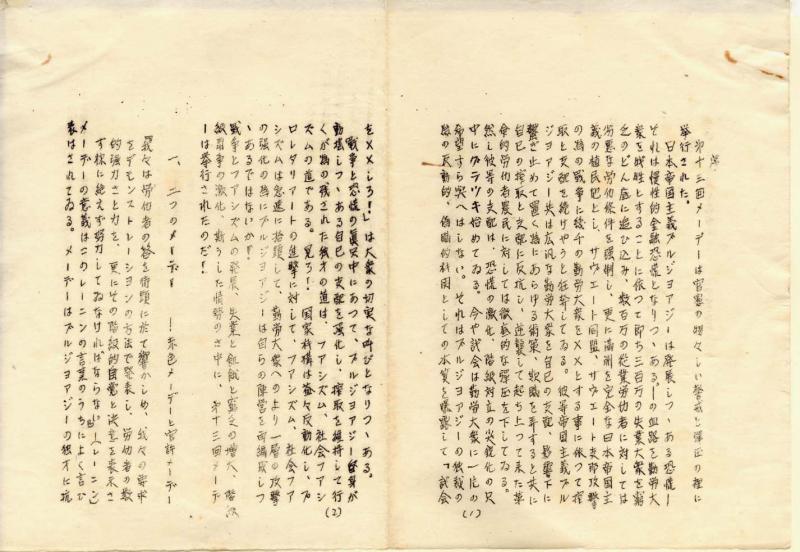 序
第十三回メーデーは官憲の物々しい警戒と弾圧の裡に
挙行された。
日本帝国主義ブルジョアジーは発展しつゝある恐慌ー
それは慢性的金融恐慌となりつゝあるーの血路を勤労大
衆を犠牲とすることに依つて即ち三百万の失業大衆を窮
乏のどん底に追ひ込み、数百万の従業労働者に対しては
劣悪な労働条件を強制し、更に満洲を完全な日本帝国主
義の植民地とし、サヴェート同盟、サヴェート支那攻撃
の為の戦争に幾千の勤労大衆を××とする事に依つて搾
取と支配を続けやうと狂奔してゐる。彼等帝国主義ブル
ジョアジー共は広汎な勤労大衆を自己の支配、影響下に
繋ぎ止めて置く為にあらゆる術策、欺瞞を弄すると共に
自己の搾取と支配に反抗し、逆襲して起ち上つて来た革
命的労働者農民に対しては徹底的な弾圧を下してゐる。
然し彼等の支配は、恐慌の激化、階級対立の尖鋭化の只
中にグラツキ始めてゐる。今や議会は勤労大衆に一片の
希望すら与へはしない。それはブルジョアジーの独裁の
為の反動的、偽瞞的機関としての本質を曝露して「議会
(1)
を××しろ!」は大衆の切実な叫びとなりつゝある。
戦争と恐慌の真只中にあつて、ブルジョアジー自身が
動揺しつゝある自己の支配を強化し、搾取を維持して行
くが為の残された独才の道は、ファシズム、社会ファシ
ズムの道である。見ろ!国家機構は益々反動化し、プ
ロレタリアートの進撃に対して、ファシズム、社会ファ
シズムは急速に抬頭して、勤労大衆へのより一層の攻撃
の強化の為にブルジョアジーは自らの陣営を再編成しつ
ゝあるではないか!
戦争とファシズムの発展、失業と飢餓と窮乏の増大、階級
級闘争の激化、斯うした情勢のさ中に、第十三回メーデ
ーは挙行されたのだ!
一、二つのメーデー ー赤色メーデーと官許メーデー
『我々は労働者の答を街頭に於て響かしめ、我々の要求
をデモンストレーションの方法で発表し、労働者の数
的強力さと力を、更にその階級的自覚と決意を表示さ
す様に絶えず努力してゐなければならない』(レーニン)
メーデーの意義はこのレーニンの言葉のうちによく言ひ
表はされてゐる。メーデーはブルジョアジーの独才に抗
(2)